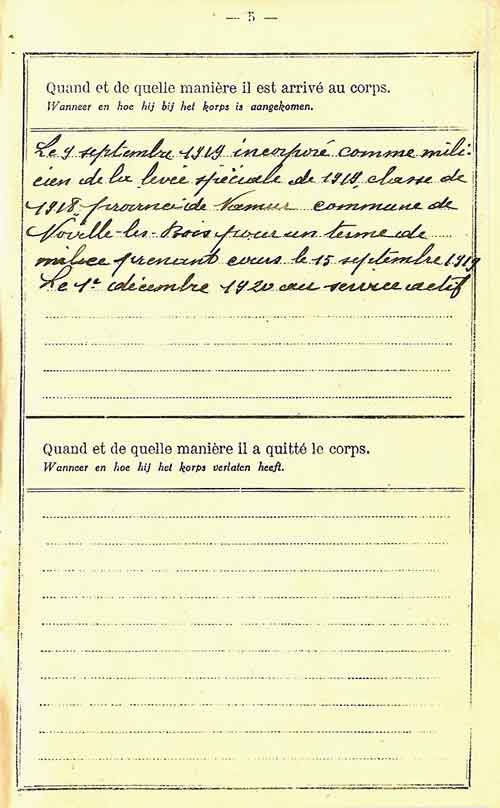 — 5 —
Quand et de quelle manière il est arrivé au corps.
Wanneer en hoe hij bij het korps is aangekomen.
Le 9 septembre 1919 incorporé comme mili-
cien de la levée spéciale de 1919 classe de
1918 province de Namur commune de
Noville-les-Bois pour un terme de
milice prenant cours le 15 septembre 1919
Le 1er décembre 1920 au service actif
Quand et de quelle manière il a quitté le corps.
Wanneer en hoe hij het korps verlaten heeft.